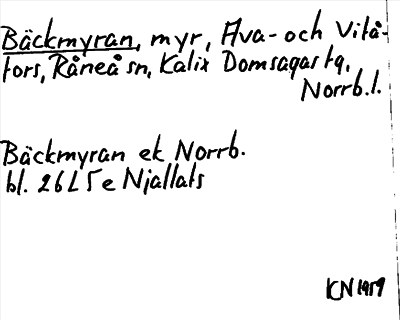 Bäckmyran, myr, Ava- och Vitå-
fors, Råneå sn, Kalix Domsagas tg,
Norrb. l.
Bäckmyran ek Norrb.
bl. 26 L 5 e Njallats
KN 1959